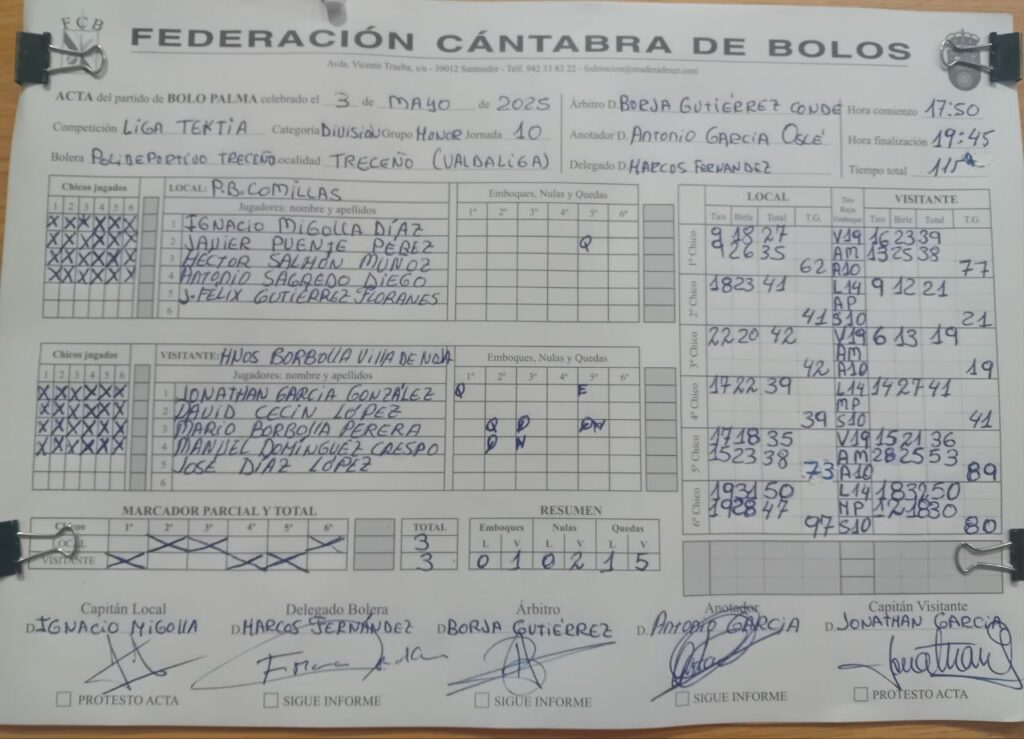 FCB
FEDERACIÓN CÁNTABRA DE BOLOS
Avda. Vicente Trueba, s/n - 39012 Santander - Telf. 942 33 83 22 - federacion@maderadeser.com
ACTA del partido de BOLO PALMA celebrado el 3 de MAYO de 2025
Competición LIGA TEKTIA Categoría DIVISIÓN Grupo HONOR Jornada 10
Bolera POLIDEPORTIVO TRECEÑO Localidad TRECEÑO (VALDALIGA)
Árbitro D. BORJA GUTIÉRREZ CONDE Hora comienzo 17:50
Anotador D. ANTONIO GARCIA OSLÉ Hora finalización 19:45
Delegado D. MARCOS FERNANDEZ Tiempo total 115
Chicos jugados LOCAL: P.B. COMILLAS Emboques, Nulas y Quedas
1 2 3 4 5 6 Jugadores: nombre y apellidos 1º 2º 3º 4º 5º 6º
X X X X X X 1 IGNACIO MIGOLLA DÍAZ
X X X X X X 2 JAVIER PUENTE PÉREZ Q
X X X X X X 3 HÉCTOR SALMÓN MUÑOZ
X X X X X X 4 ANTONIO SAGREDO DIEGO
5 J. FÉLIX GUTIÉRREZ FLORANES
6
Chicos jugados VISITANTE: HNOS BORBOLLA VILLA DE NOJA Emboques, Nulas y Quedas
1 2 3 4 5 6 Jugadores: nombre y apellidos 1º 2º 3º 4º 5º 6º
X X X X X X 1 JONATHAN GARCIA GONZÁLEZ Q E
X X X X X X 2 DAVID CECIN LÓPEZ
X X X X X X 3 MARIO BORBOLLA PERERA Q
X X X X X X 4 MANUEL DOMÍNGUEZ CRESPO N
5 JOSÉ DÍAZ LÓPEZ
6
LOCAL Tiro Raya Emboque VISITANTE
Tiro Birle Total T.G. Tiro Birle Total T.G.
1º Chico 9 18 27 V19 16 23 39
9 26 35 AM 13 25 38
62 A10 77
2º Chico 18 23 41 L14 9 12 21
AP
41 S10 21
3º Chico 22 20 42 V19 6 13 19
AM
42 A10 19
4º Chico 17 22 39 L14 14 27 41
MP
39 S10 41
5º Chico 17 18 35 V19 15 21 36
15 23 38 AM 28 25 53
73 A10 89
6º Chico 19 31 50 L14 18 32 50
19 28 47 MP 12 18 30
97 S10 80
MARCADOR PARCIAL Y TOTAL
Chicos 1º 2º 3º 4º 5º 6º TOTAL
LOCAL X X X 3
VISITANTE X X X 3
RESUMEN
Emboques Nulas Quedas
L V L V L V
0 1 0 2 1 5
Capitán Local Delegado Bolera Árbitro Anotador Capitán Visitante
D. IGNACIO MIGOLLA D. MARCOS FERNÁNDEZ D. BORJA GUTIÉRREZ D. Antonio GARCIA D. JONATHAN GARCIA
Jonathan
PROTESTO ACTA SIGUE INFORME SIGUE INFORME SIGUE INFORME PROTESTO ACTA